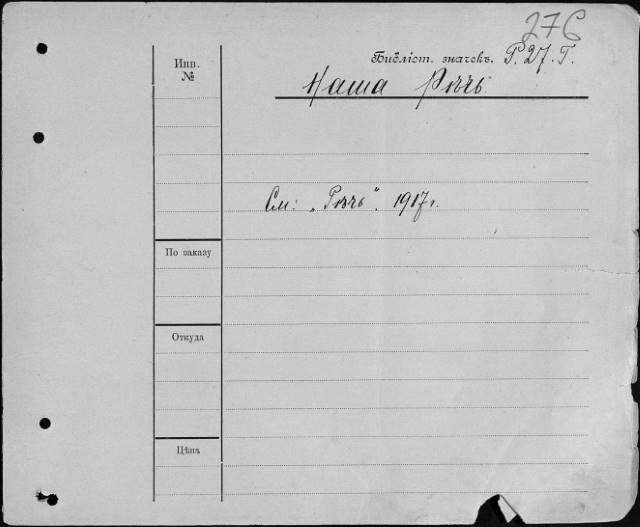 276
Инв. №
Библіот. значекъ. Р. 27. Г.
Наша Рѣчь
См: „Рѣчь“. 1917г.
По заказу
Откуда
Цѣна